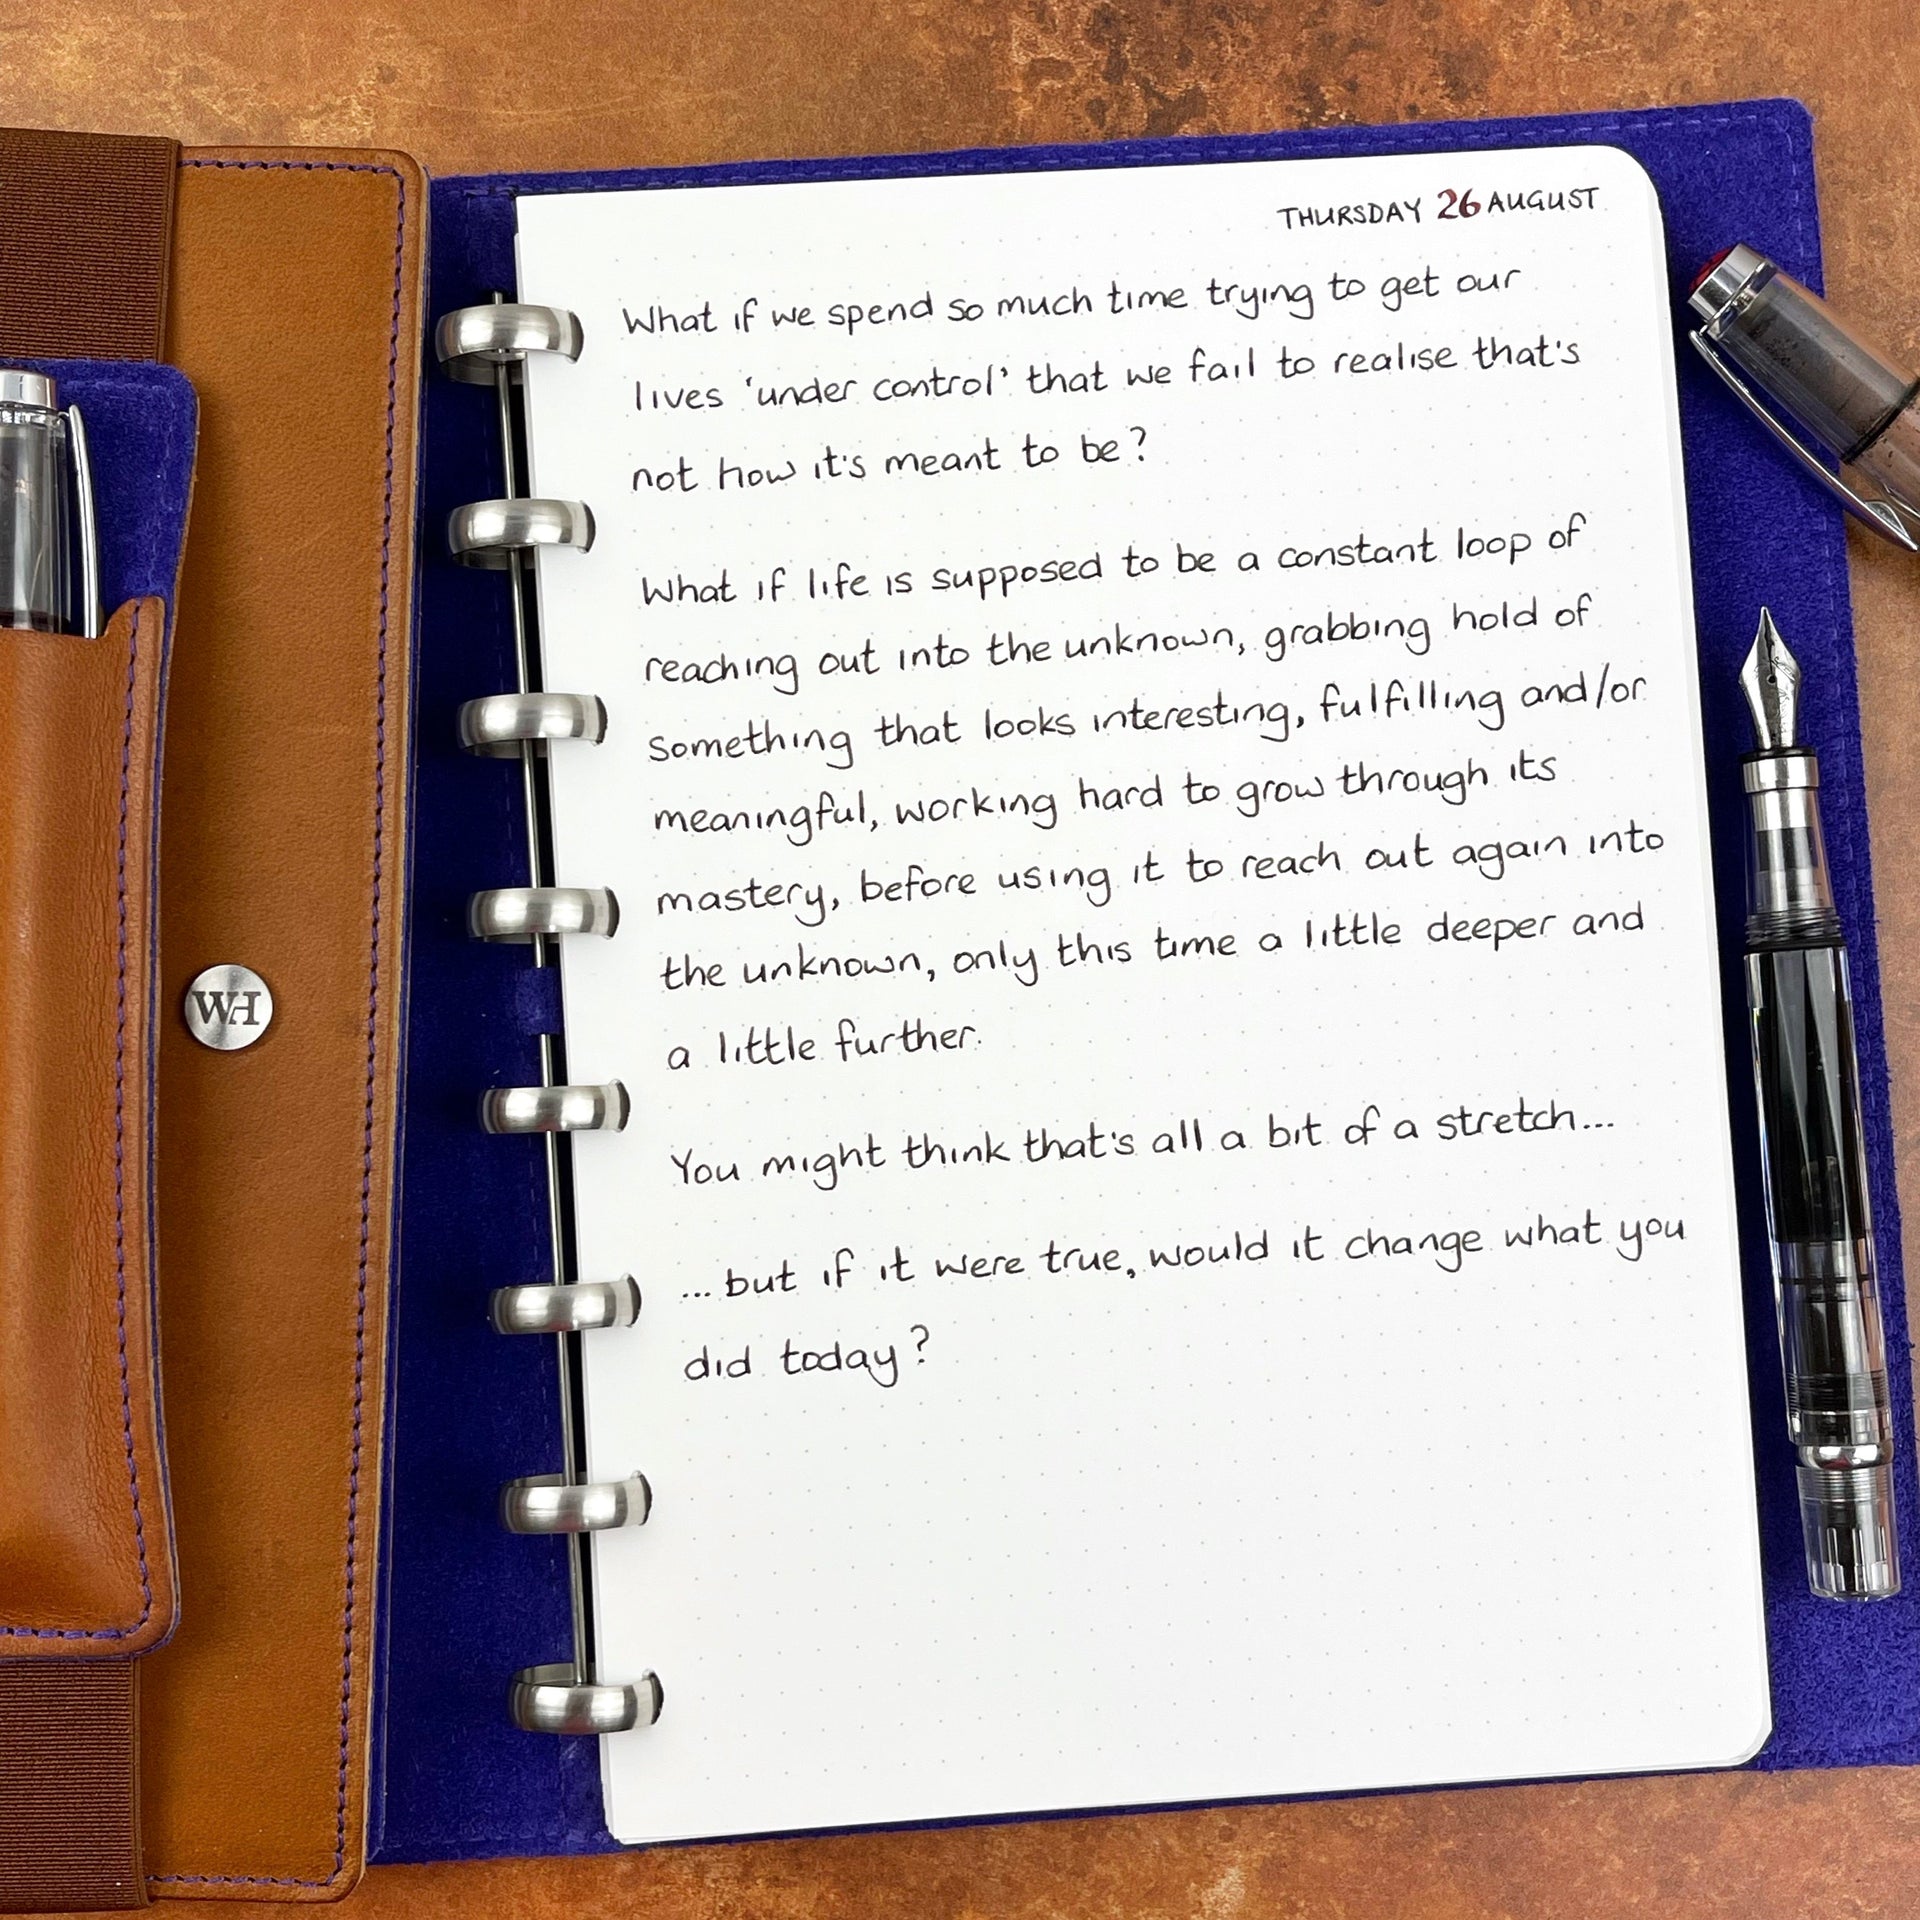 THURSDAY 26 AUGUST
What if we spend so much time trying to get our
lives 'under control' that we fail to realise that's
not how it's meant to be?
What if life is supposed to be a constant loop of
reaching out into the unknown, grabbing hold of
something that looks interesting, fulfilling and/or
meaningful, working hard to grow through its
mastery, before using it to reach out again into
the unknown, only this time a little deeper and
a little further.
You might think that's all a bit of a stretch...
...but if it were true, would it change what you
did today?
WH